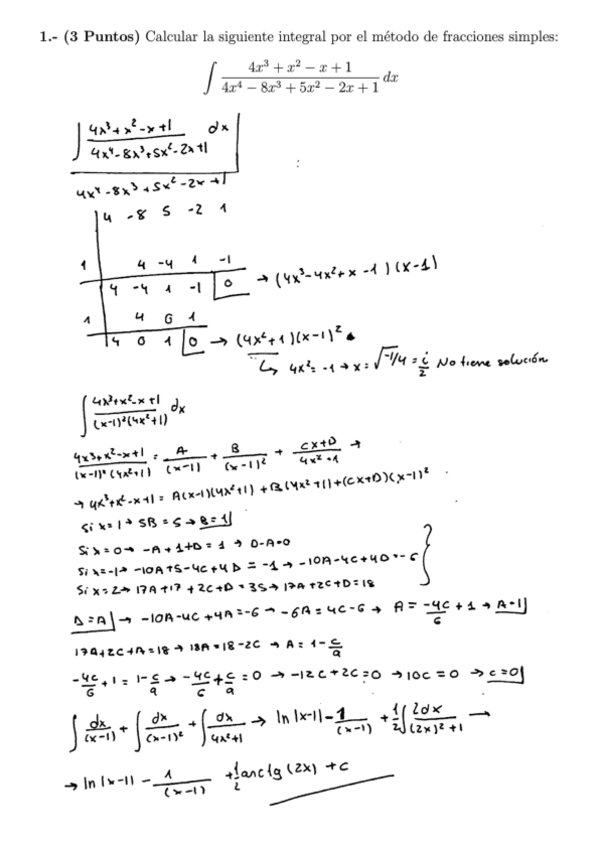 1.- (3 Puntos) Calcular la siguiente integral por el método de fracciones simples:
∫ (4x³ + x² − x + 1)/(4x⁴ − 8x³ + 5x² − 2x + 1) dx
∫ (4x³+x²-x+1)/(4x⁴-8x³+5x²-2x+1) dx
4x⁴-8x³+5x²-2x+1
4 -8 5 -2 1
1 4 -4 1 -1
4 -4 1 -1 0 → (4x³-4x²+x-1)(x-1)
1 4 0 1
4 0 1 0 → (4x²+1)(x-1)²
↳ 4x²=-1 → x=√-1/4 = i/2 No tiene solución
∫ (4x³+x²-x+1)/((x-1)²(4x²+1)) dx
(4x³+x²-x+1)/((x-1)²(4x²+1)) = A/(x-1) + B/(x-1)² + (Cx+D)/(4x²+1) →
→ 4x³+x²-x+1 = A(x-1)(4x²+1) + B(4x²+1)+(Cx+D)(x-1)²
Si x=1 → 5B=5 → B=1
Si x=0 → -A+1+D=1 → D-A=0
Si x=-1 → -10A+5-4C+4D=-1 → -10A-4C+4D=-6
Si x=2 → 17A+17+2C+D=35 → 17A+2C+D=18
D=A → -10A-4C+4A=-6 → -6A=4C-6 → A=-4C/6+1 → A=1
17A+2C+A=18 → 18A=18-2C → A=1-C/9
-4C/6+1=1-C/9 → -4C/6+C/9=0 → -12C+2C=0 → 10C=0 → C=0
∫ dx/(x-1) + ∫ dx/(x-1)² + ∫ dx/(4x²+1) → ln|x-1| - 1/(x-1) + 1/2 ∫ 2dx/((2x)²+1) →
→ ln|x-1| - 1/(x-1) + 1/2 arctg(2x) + C